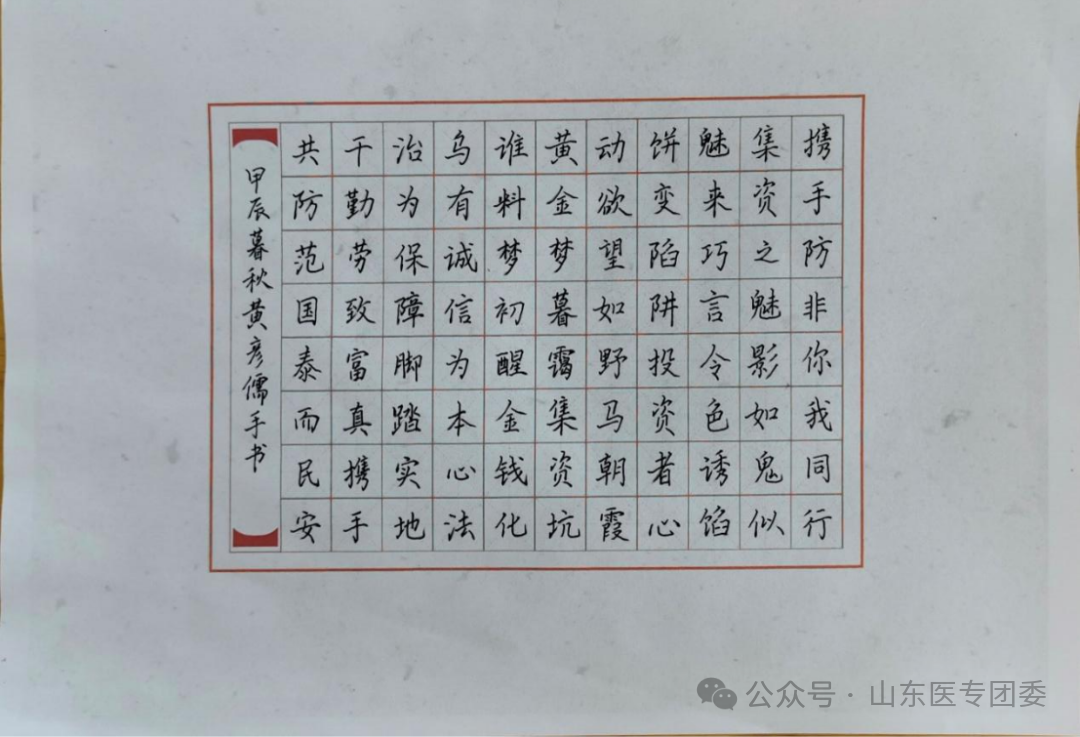 携手防非你我同行
集资之魅影如鬼似
魅来巧言令色诱馅
饼变陷阱投资者心
动欲望如野马朝霞
黄金梦暮霭集资坑
谁料梦初醒金钱化
乌有诚信为本心法
治为保障脚踏实地
干勤劳致富真携手
共防范国泰而民安
甲辰暮秋黄彦儒手书
公众号·山东医专团委